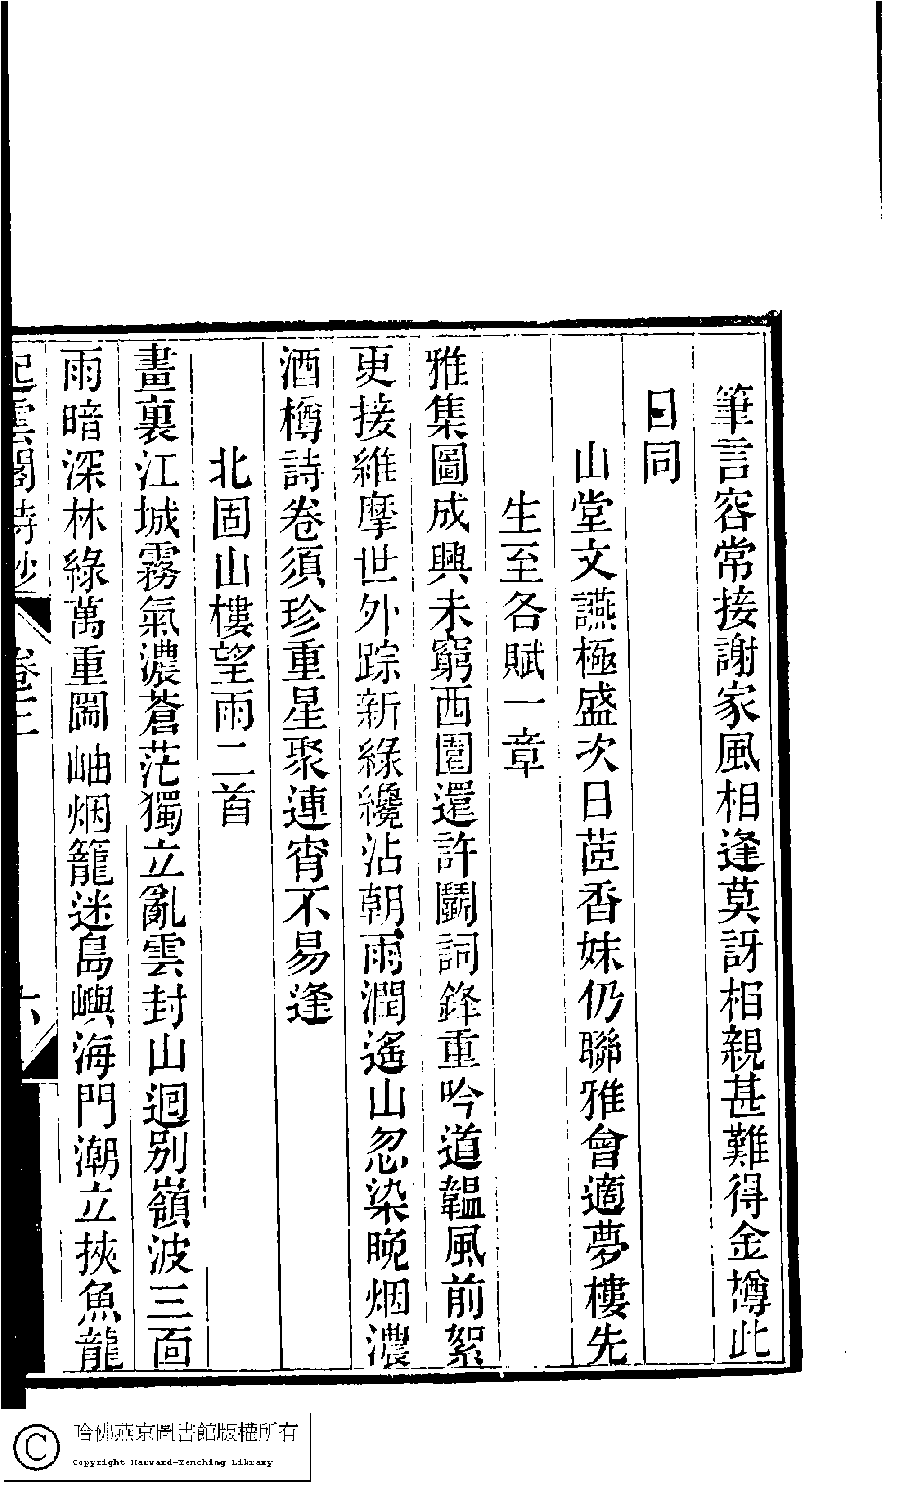 筆言容常接謝家風相逢莫訝相親甚難得金樽此
日同
山堂文讌極盛次日茝香妹仍聯雅會適夢樓先
生至各賦一章
雅集圖成興未窮西園還許鬭詞鋒重吟道韞風前絮
更接維摩世外踪新綠纔沾朝雨潤遙山忽染晚烟濃
酒樽詩卷須珍重星聚連宵不易逢
北固山樓望雨二首
畫裏江城霧氣濃蒼茫獨立亂雲封山迴別嶺波三面
雨暗深林綠萬重圌岫烟籠迷島嶼海門潮立挾魚龍
起雲閣詩鈔 卷三 六
哈佛燕京圖書館版權所有
Copyright Harvard-Yenching Library